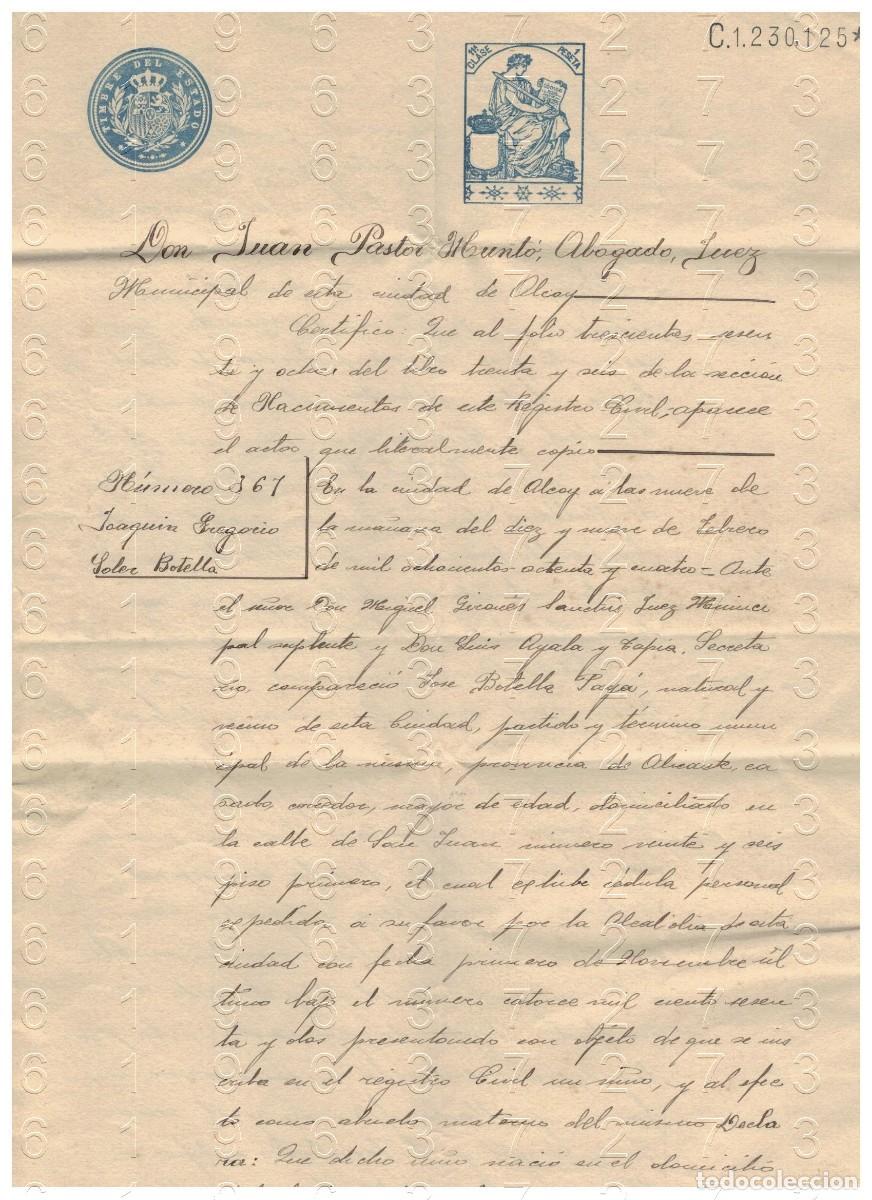 C.1.230,125*
TIMBRE DEL ESTADO
11ª CLASE
1 PESETA
Don Juan Pastor Muntó, Abogado, Juez
Municipal de esta ciudad de Alcoy
Certifico: Que al folio trescientos sesen
ta y ocho del libro treinta y seis de la sección
de Nacimientos de este Registro Civil, aparece
el acta que literalmente copio
Número 367
Joaquin Gregorio
Soler Botella
En la ciudad de Alcoy á las nueve de
la mañana del diez y nueve de Febrero
de mil ochocientos ochenta y cuatro = Ante
el señor Don Miguel Gironés Sanchis Juez Munici
pal suplente y Don Luis Ayala y Tapia, Secreta
rio, compareció José Botella Payá, natural y
vecino de esta Ciudad, partido y término muni
cipal de la misma, provincia de Alicante, ca
sado, corredor, mayor de edad, domiciliado en
la calle de San Juan número veinte y seis
piso primero, el cual exhibe cédula personal
expedida á su favor por la Alcaldia de esta
ciudad con fecha primero de Noviembre úl
timo bajo el número catorce mil ciento sesen
ta y dos presentando con objeto de que se ins
criba en el registro Civil un niño, y al efec
to como abuelo materno del mismo Decla
ra: Que dicho niño nació en el domicilio
todocoleccion